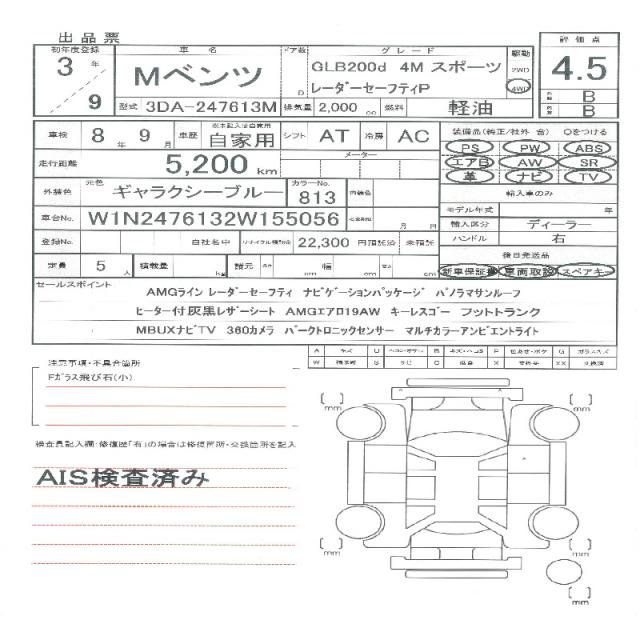 出品票
初年度登録 車名 ドア数 グレード 駆動 評価点
3年 / 9 Mベンツ D GLB200d 4M スポーツ 2WD 4.5
レーダーセーフティP 4WD 外装 B
型式 3DA-247613M 排気量 2,000 cc 燃料 軽油 内装 B
車検 8年 9月 車歴 自家用 シフト AT 冷房 AC 装備品(純正/社外 含) Oをつける
走行距離 5,200 km メーター PS PW ABS
エアB AW SR
革 ナビ TV
外装色 元色 ギャラクシーブルー カラーNo. 813 内装色 輸入車のみ
モデル年式 年
車台No. W1N2476132W155056 月 日 輸入区分 ディーラー
登録No. 自社名中 リサイクル預託金 22,300 円預託済 未預託 ハンドル 右
定員 5人 積載量 kg 諸元 長さ cm 幅 cm 高さ cm 後日発送品
新車保証書 車両取説 スペアキー
セールスポイント
AMGライン レーダーセーフティ ナビゲーションパッケージ パノラマサンルーフ
ヒーター付灰黒レザーシート AMGエアロ19AW キーレスゴー フットトランク
MBUXナビTV 360カメラ パークトロニックセンサー マルチカラーアンビエントライト
A キズ U B キズ・ヘコミ P 色あせ・ボケ G ガラスキズ
W S サビ C X XX
注意事項・不具合箇所
Fガラス飛び石(小)
検査員記入欄・修復歴「有」の場合は修復箇所・交換箇所を記入
AIS検査済み
mm
mm
mm
mm
mm